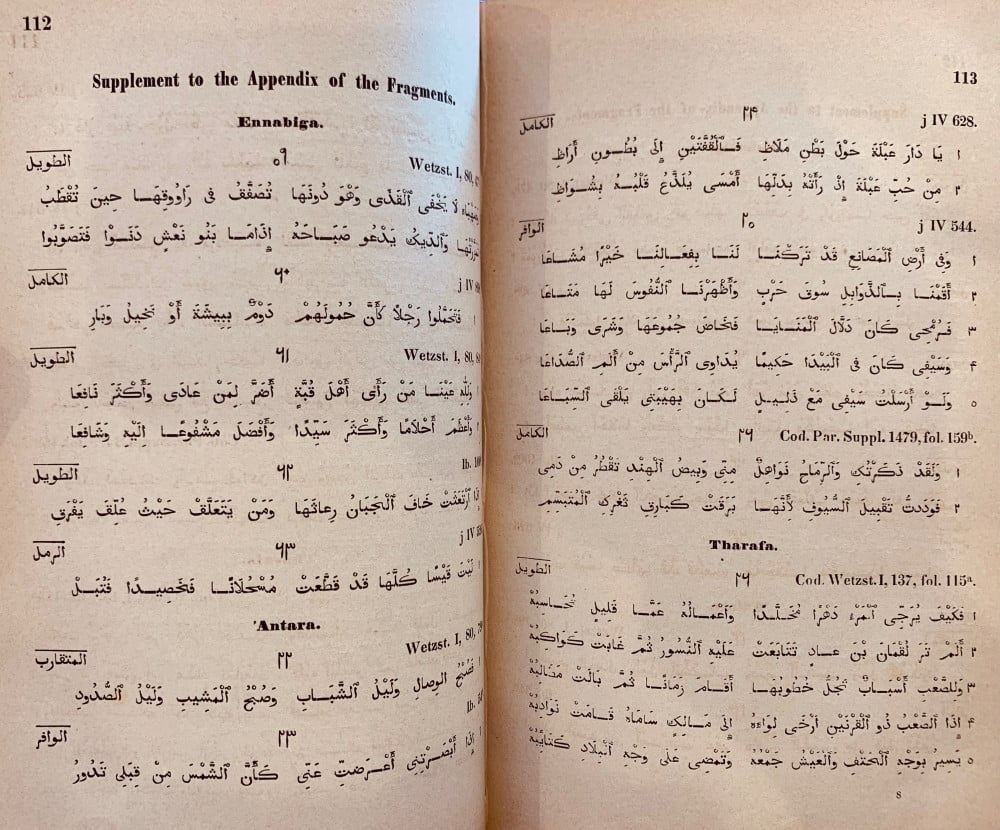 112
Supplement to the Appendix of the Fragments.
Ennabiga.
الطويل ٥٩ Wetzst. I, 80,
لَا يَخْفَى ٱلْقَذَى وَهْوَ دُونَهَا تُصَفَّقُ فِى رَاوُوقِهَا حِينَ تُقْطَبُ
وَٱلدِّيكُ يَدْعُو صَبَاحَهُ إِذَامَا بَنُو نَعْشٍ دَنَوْا فَتَصَوَّبُوا
الكامل ٦٠ j IV
١ فَتَحَمَّلُوا رَجُلًا كَأَنَّ حُمُولَهُمْ دَوْمٌ بِبِيشَةَ أَوْ نَخِيلُ وَبَارِ
الطويل ٦١ Wetzst. I, 80,
١ وَلِلّٰهِ عَيْنَا مَنْ رَأَى أَهْلَ قُبَّةٍ أَضَرَّ لِمَنْ عَادَى وَأَكْثَرَ نَافِعَا
وَأَعْظَمَ أَحْلَامًا وَأَكْثَرَ سَيِّدًا وَأَفْضَلَ مَشْفُوعًا إِلَيْهِ وَشَافِعَا
الطويل ٦٢ Ib.
إِذَا ٱرْتَعَثَتْ خَافَ ٱلْجَبَانُ رِعَاثَهَا وَمَنْ يَتَعَلَّقْ حَيْثُ عُلِّقَ يَفْرَقِ
الرمل ٦٣ j IV
قَيْسًا كُلَّهَا قَدْ قَطَّعَتْ مُسْحُلَانًا فَحَصِيدًا فَتُبَلْ
'Antara.
المتقارب ٢٢ Wetzst. I, 80,
فَصُبْحُ ٱلْوِصَالِ وَلَيْلُ ٱلشَّبَابِ وَصُبْحُ ٱلْمَشِيبِ وَلَيْلُ ٱلصُّدُودِ
الوافر ٢٣ Ib.
إِذَا أَبْصَرْتِنِى أَعْرَضْتِ عَنِّى كَأَنَّ ٱلشَّمْسَ مِنْ قِبَلِى تَدُورُ
113
الكامل ٢٤ j IV 628.
١ يَا دَارَ عَبْلَةَ حَوْلَ بَطْنِ مَلَاظِ فَٱلْقُفَّتَيْنِ إِلَى بُطُونِ أَرَاظِ
٢ مِنْ حُبِّ عَبْلَةَ إِذْ رَأَتْهُ بَدَلَهَا أَمْسَى يُلَذَّعُ قَلْبُهُ بِشُوَاظِ
الوافر ٢٥ j IV 544.
١ وَفِى أَرْضِ ٱلْمَصَانِعِ قَدْ تَرَكْنَا لَنَا بِفَعَالِنَا خَبَرًا مُشَاعَا
٢ أَقَمْنَا بِٱلذَّوَابِلِ سُوقَ حَرْبٍ وَأَظْهَرْنَا ٱلنُّفُوسَ لَهَا مَتَاعَا
٣ فَرُمْحِى كَانَ دَلَّالَ ٱلْمَنَايَا فَخَاضَ جُمُوعَهَا وَشَرَى وَبَاعَا
٤ وَسَيْفِى كَانَ فِى ٱلْبَيْدَا حَكِيمًا يُدَاوِى ٱلرَّأْسَ مِنْ أَلَمِ ٱلصُّدَاعَا
٥ وَلَوْ أَرْسَلْتُ سَيْفِى مَعْ ذَلِيلٍ لَكَانَ بِهَيْبَتِى يَلْقَى ٱلسِّبَاعَا
الكامل ٢٦ Cod. Par. Suppl. 1479, fol. 159ᵇ.
١ وَلَقَدْ ذَكَرْتُكِ وَٱلرِّمَاحُ نَوَاهِلٌ مِنِّى وَبِيضُ ٱلْهِنْدِ تَقْطُرُ مِنْ دَمِى
٢ فَوَدَدْتُ تَقْبِيلَ ٱلسُّيُوفِ لِأَنَّهَا بَرَقَتْ كَبَارِقِ ثَغْرِكِ ٱلْمُتَبَسِّمِ
Tharafa.
الطويل ٢٦ Cod. Wetzst. I, 137, fol. 115ᵃ.
١ فَكَيْفَ يُرَجِّى ٱلْمَرْءُ دَهْرًا مُخَلَّدًا وَأَعْمَالُهُ عَمَّا قَلِيلٍ تُحَاسِبُهْ
٢ أَلَمْ تَرَ لُقْمَانَ بْنَ عَادٍ تَتَابَعَتْ عَلَيْهِ ٱلنُّسُورُ ثُمَّ غَابَتْ كَوَاكِبُهْ
٣ وَلِلصَّعْبِ أَسْبَابٌ تَجُلُّ خُطُوبُهَا أَقَامَ زَمَانًا ثُمَّ بَانَتْ مَطَالِبُهْ
٤ إِذَا ٱلصَّعْبُ ذُو ٱلْقَرْنَيْنِ أَرْخَى لِوَاءَهُ إِلَى مَالِكٍ سَامَاهُ قَامَتْ نَوَادِبُهْ
٥ يَسِيرُ بِوَجْهِ ٱلْحَتْفِ وَٱلْعَيْشُ جَمْعُهُ وَتَمْضِى عَلَى وَجْهِ ٱلْبِلَادِ كَتَائِبُهْ
8